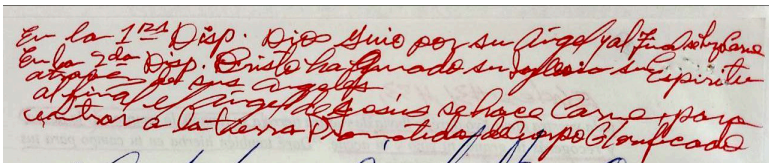 En la 1ra Disp. Dios Guio por su Angel y al Final se hizo Carne
En la 2da Disp. Cristo ha Guiado su Iglesia su Espiritu
atraves de sus Angeles
al final el Angel de Jesús se hace Carne para
entrar a la tierra Prometida del cuerpo Glorificado